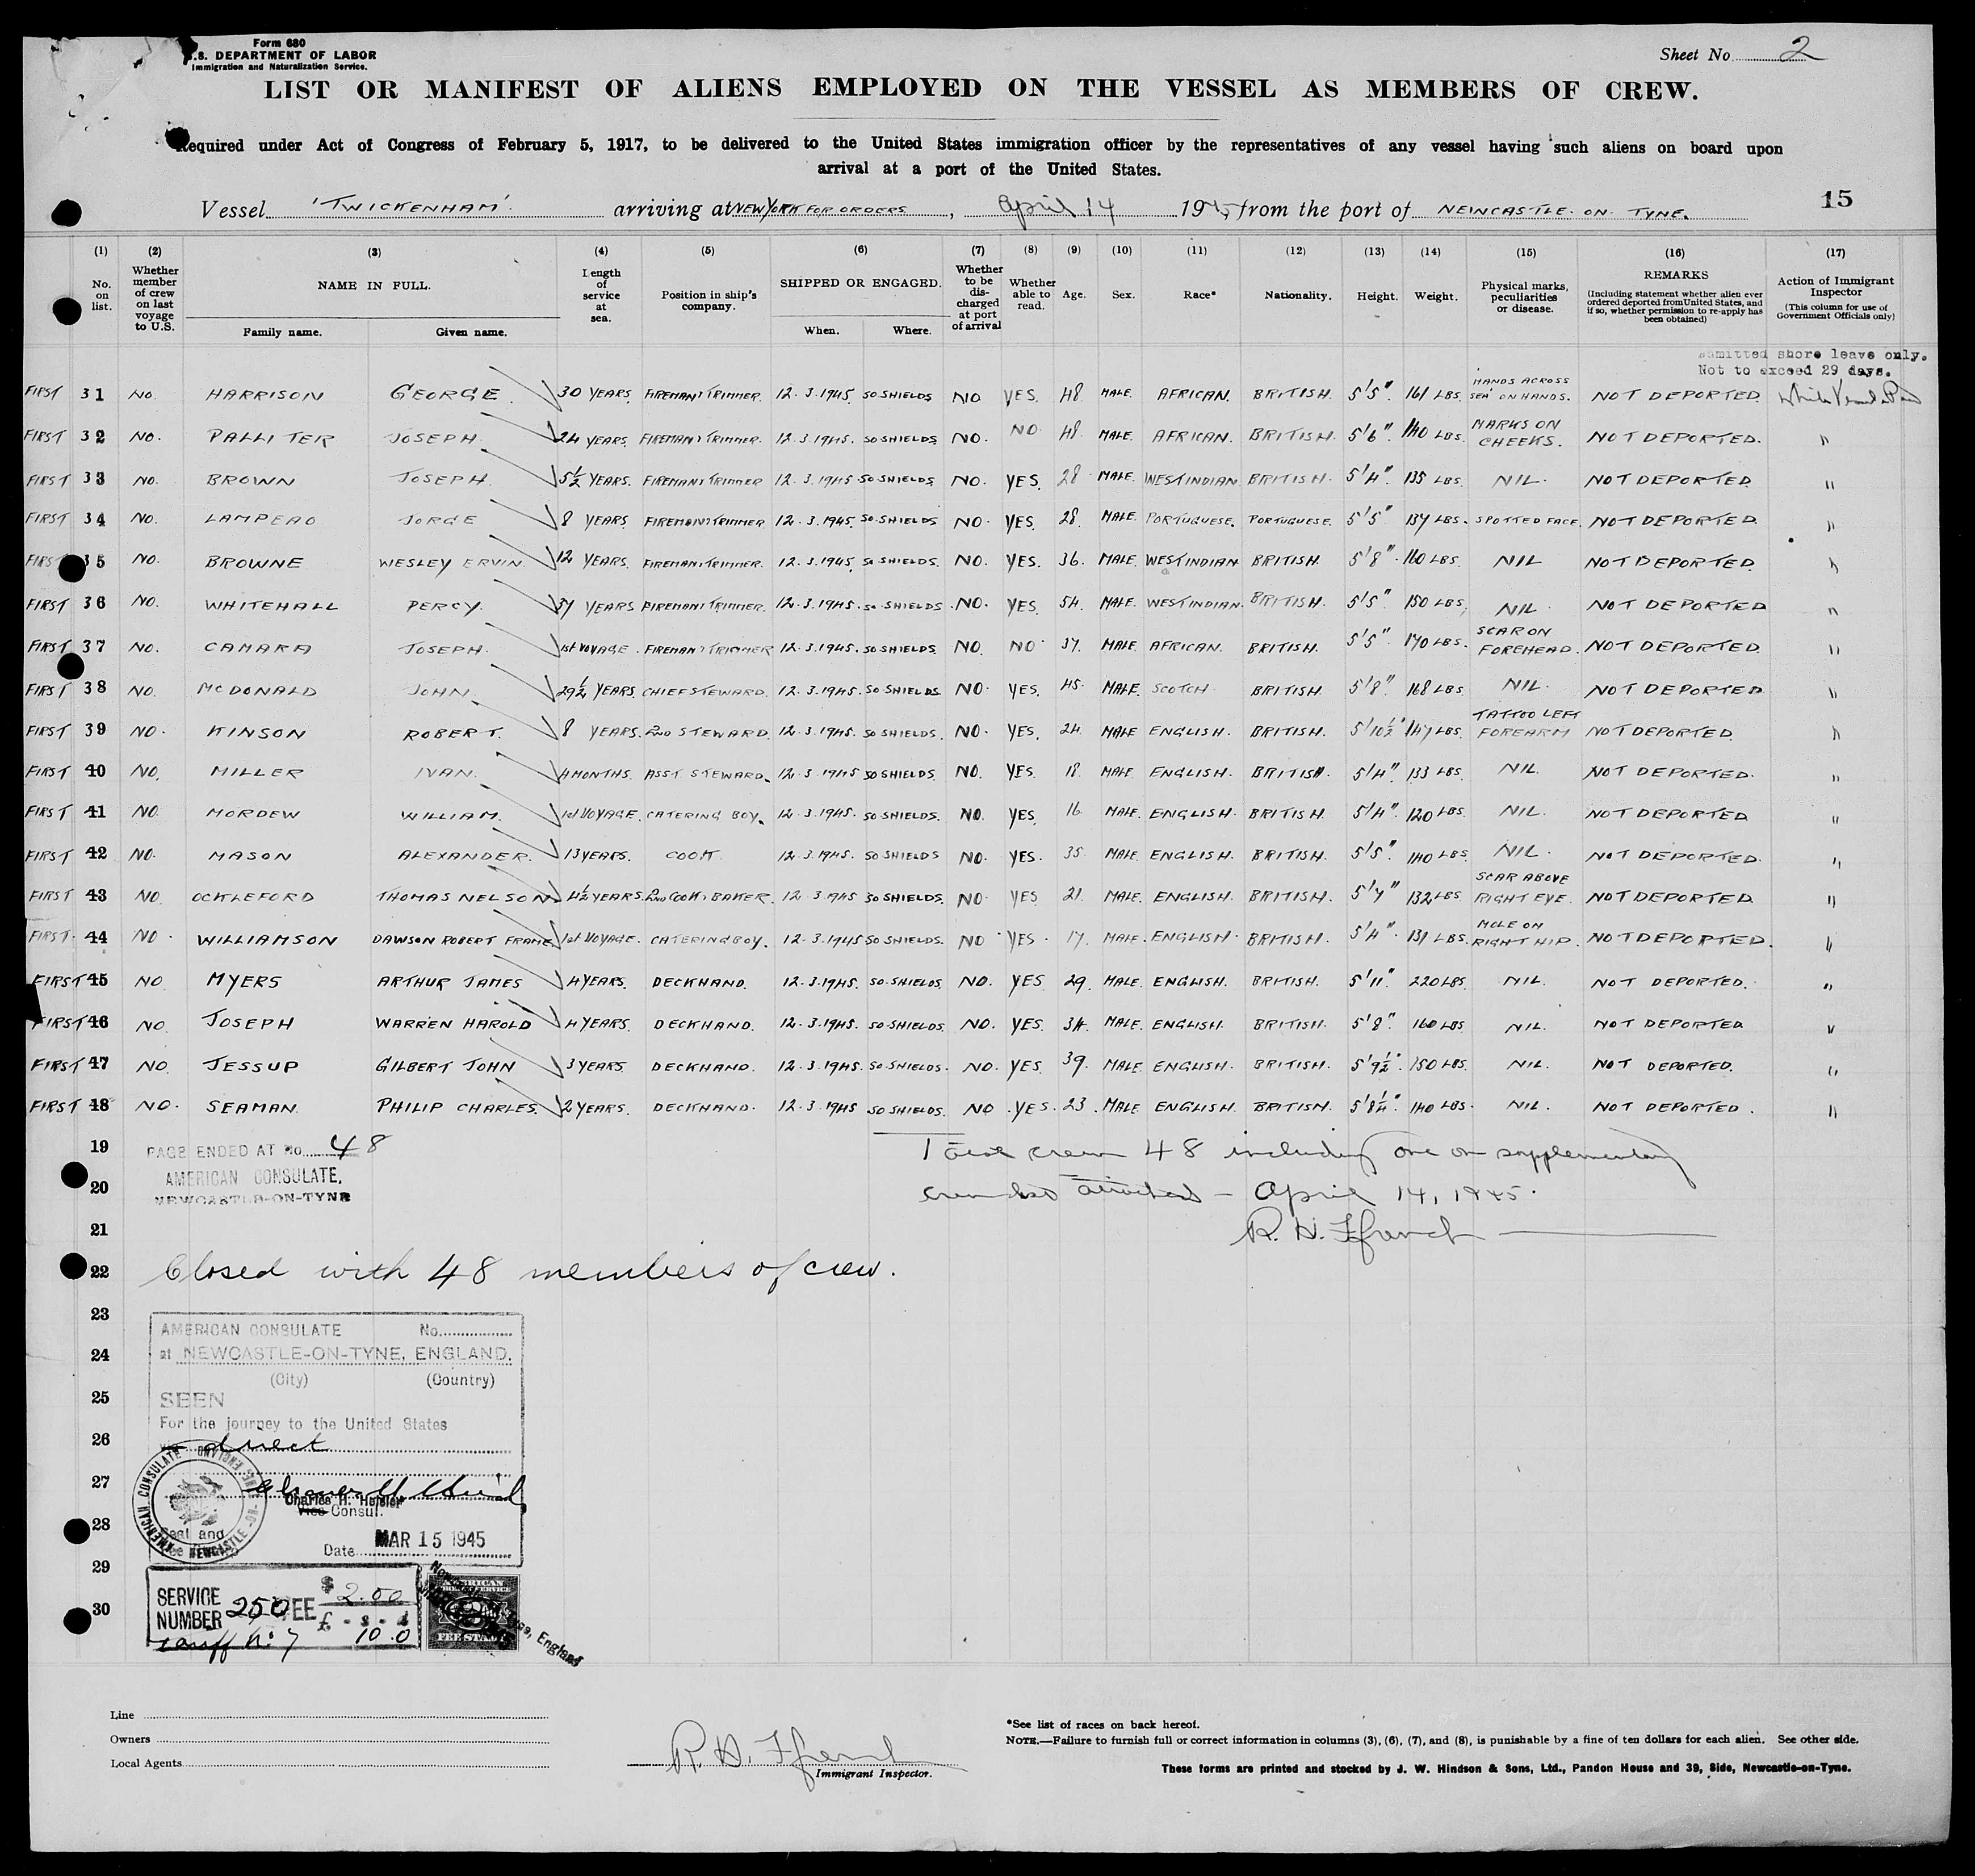 Form 680
U.S. DEPARTMENT OF LABOR
Immigration and Naturalization Service.
Sheet No. 2
LIST OR MANIFEST OF ALIENS EMPLOYED ON THE VESSEL AS MEMBERS OF CREW.
Required under Act of Congress of February 5, 1917, to be delivered to the United States immigration officer by the representatives of any vessel having such aliens on board upon
arrival at a port of the United States.
Vessel 'TWICKENHAM'. arriving at NEW YORK FOR ORDERS, April 14 1945 from the port of NEWCASTLE. ON. TYNE.
15
(1) (2) (3) (4) (5) (6) (7) (8) (9) (10) (11) (12) (13) (14) (15) (16) (17)
No. on list. Whether member of crew on last voyage to U.S. NAME IN FULL. Family name. Given name. Length of service at sea. Position in ship's company. SHIPPED OR ENGAGED. When. Where. Whether to be discharged at port of arrival Whether able to read. Age. Sex. Race* Nationality. Height. Weight. Physical marks, peculiarities or disease. REMARKS (Including statement whether alien ever ordered deported from United States, and if so, whether permission to re-apply has been obtained) Action of Immigrant Inspector (This column for use of Government Officials only)
admitted shore leave only.
Not to exceed 29 days.
FIRST 31 NO. HARRISON GEORGE. 30 YEARS. FIREMAN & TRIMMER. 12.3.1945. SO SHIELDS NO YES. 48. MALE. AFRICAN. BRITISH. 5'5" 161 LBS. HANDS ACROSS SEA ON HANDS. NOT DEPORTED.
FIRST 32 NO. PALLITER JOSEPH. 24 YEARS. FIREMAN & TRIMMER. 12.3.1945. SO SHIELDS NO. NO 48. MALE. AFRICAN. BRITISH. 5'6". 140 LBS. MARKS ON CHEEKS. NOT DEPORTED. "
FIRST 33 NO. BROWN JOSEPH. 5½ YEARS. FIREMAN & TRIMMER 12.3.1945 SO SHIELDS NO. YES. 28 MALE. WEST INDIAN BRITISH. 5'4" 135 LBS. NIL. NOT DEPORTED "
FIRST 34 NO. LAMPEAO JORGE 8 YEARS FIREMAN & TRIMMER 12.3.1945. SO SHIELDS NO. YES. 28. MALE. PORTUGUESE. PORTUGUESE. 5'5" 137 LBS. SPOTTED FACE. NOT DEPORTED. "
FIRST 35 NO. BROWNE WESLEY ERVIN. 12 YEARS. FIREMAN & TRIMMER. 12.3.1945. SO SHIELDS. NO. YES. 36. MALE. WEST INDIAN BRITISH. 5'8". 160 LBS. NIL NOT DEPORTED. "
FIRST 36 NO. WHITEHALL PERCY. 37 YEARS FIREMAN & TRIMMER. 12.3.1945. SO SHIELDS. NO. YES. 54. MALE. WEST INDIAN. BRITISH. 5'5". 150 LBS. NIL. NOT DEPORTED "
FIRST 37 NO. CAMARA JOSEPH. 1st VOYAGE. FIREMAN & TRIMMER 12.3.1945. SO SHIELDS. NO. NO. 37. MALE. AFRICAN. BRITISH. 5'5". 170 LBS. SCAR ON FOREHEAD. NOT DEPORTED. "
FIRST 38 NO. McDONALD JOHN. 29½ YEARS. CHIEF STEWARD. 12.3.1945. SO SHIELDS NO. YES. 45. MALE. SCOTCH BRITISH. 5'8" 168 LBS. NIL. NOT DEPORTED "
FIRST 39 NO. KINSON ROBERT. 8 YEARS. 2ND STEWARD. 12.3.1945. SO SHIELDS. NO. YES. 24. MALE ENGLISH. BRITISH. 5'10½" 147 LBS. TATTOO LEFT FOREARM NOT DEPORTED. "
FIRST 40 NO. MILLER IVAN. 4 MONTHS. ASST STEWARD. 12.3.1945 SO SHIELDS. NO. YES. 18. MALE. ENGLISH. BRITISH. 5'4". 133 LBS. NIL. NOT DEPORTED. "
FIRST 41 NO. MORDEW WILLIAM. 1st VOYAGE. CATERING BOY. 12.3.1945. SO SHIELDS. NO. YES. 16. MALE. ENGLISH. BRITISH. 5'4" 120 LBS. NIL. NOT DEPORTED. "
FIRST 42 NO. MASON ALEXANDER. 13 YEARS. COOK. 12.3.1945. SO SHIELDS NO. YES. 35. MALE. ENGLISH. BRITISH. 5'5" 140 LBS. NIL. NOT DEPORTED. "
FIRST 43 NO. OCKLEFORD THOMAS NELSON 4½ YEARS. 2ND COOK & BAKER. 12.3.1945 SO SHIELDS. NO. YES 21. MALE. ENGLISH. BRITISH. 5'7" 132 LBS SCAR ABOVE RIGHT EYE. NOT DEPORTED "
FIRST. 44 NO. WILLIAMSON DAWSON ROBERT FRAME 1st VOYAGE. CATERING BOY. 12.3.1945 SO SHIELDS. NO YES. 17. MALE. ENGLISH. BRITISH. 5'4". 131 LBS. MOLE ON RIGHT HIP. NOT DEPORTED. "
FIRST 45 NO MYERS ARTHUR JAMES 4 YEARS. DECKHAND. 12.3.1945. SO. SHIELDS. NO. YES 29. MALE. ENGLISH. BRITISH. 5'11" 220 LBS. NIL. NOT DEPORTED. "
FIRST 46 NO. JOSEPH WARREN HAROLD 4 YEARS. DECKHAND. 12.3.1945. SO. SHIELDS. NO. YES. 34. MALE. ENGLISH. BRITISH. 5'8". 160 LBS NIL. NOT DEPORTED "
FIRST 47 NO. JESSUP GILBERT JOHN 3 YEARS DECKHAND. 12.3.1945. SO SHIELDS. NO. YES. 39. MALE. ENGLISH. BRITISH. 5'9½". 150 LBS. NIL. NOT DEPORTED. "
FIRST 48 NO. SEAMAN. PHILIP CHARLES. 2 YEARS. DECKHAND. 12.3.1945 SO SHIELDS. NO. YES. 23. MALE ENGLISH. BRITISH. 5'8¼". 140 LBS. NIL. NOT DEPORTED. "
19
PAGE ENDED AT No. 48
Total crew 48 including one on supplementary
AMERICAN CONSULATE,
20
NEWCASTLE-ON-TYNE
crew list attached - April 14, 1945.
21
R. H. Ffrench
22
Closed with 48 members of crew.
23
AMERICAN CONSULATE No.
24
at NEWCASTLE-ON-TYNE, ENGLAND.
(City) (Country)
25
SEEN
For the journey to the United States
26
via direct
27
Charles H. Heisler
Vice Consul.
28
Seal and
AMERICAN CONSULATE NEWCASTLE-ON-TYNE, ENGLAND
Date MAR 15 1945
29
30
SERVICE NUMBER 250 FEE $ 2.00
£ - s - d
Tariff No 7 10.0
AMERICAN
FEE STAMP
England
Line
Owners
Local Agents
R. H. Ffrench
Immigrant Inspector.
*See list of races on back hereof.
NOTE.—Failure to furnish full or correct information in columns (3), (6), (7), and (8), is punishable by a fine of ten dollars for each alien. See other side.
These forms are printed and stocked by J. W. Hindson & Sons, Ltd., Pandon House and 39, Side, Newcastle-on-Tyne.